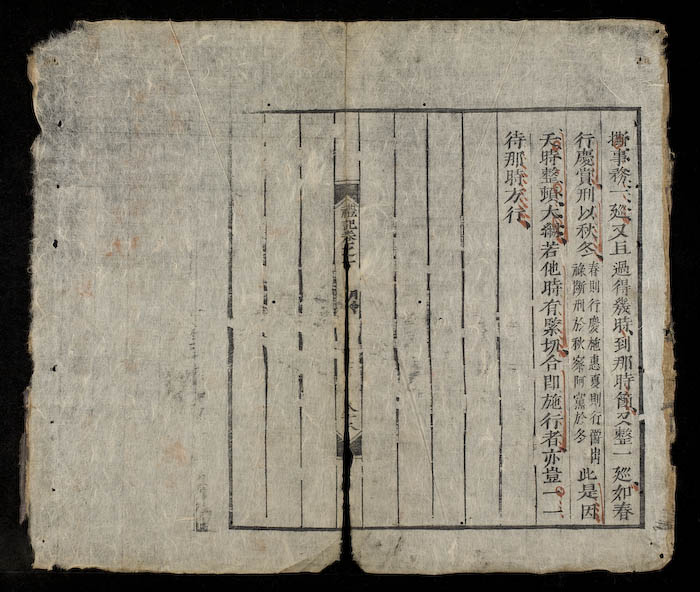 事務一廵又且過得幾時到那時節又整一廵如春
行慶賞刑以秋冬
春則行慶施惠夏則行爵出
祿斷刑於秋察阿黨於冬
此是因
天時整頓大綱若他時有緊切合即施行者亦豈一一
待那時方行
禮記卷之
月令